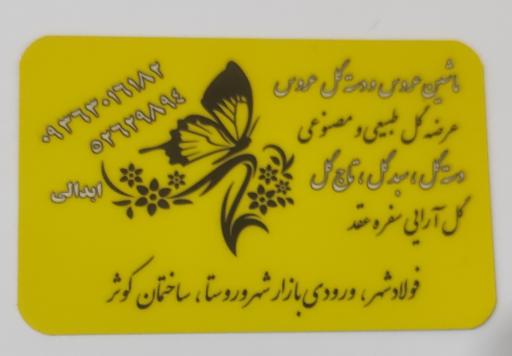 ماشین عروس و دسته گل عروس
عرضه گل طبیعی و مصنوعی
دسته گل ، سبد گل ، تاج گل
گل آرایی سفره عقد
۰۹۳۶۳۰۱۶۱۸۲
۵۲۶۲۹۸۹۴
ابدالی
فولادشهر ، ورودی بازار شهر و روستا ، ساختمان کوثر